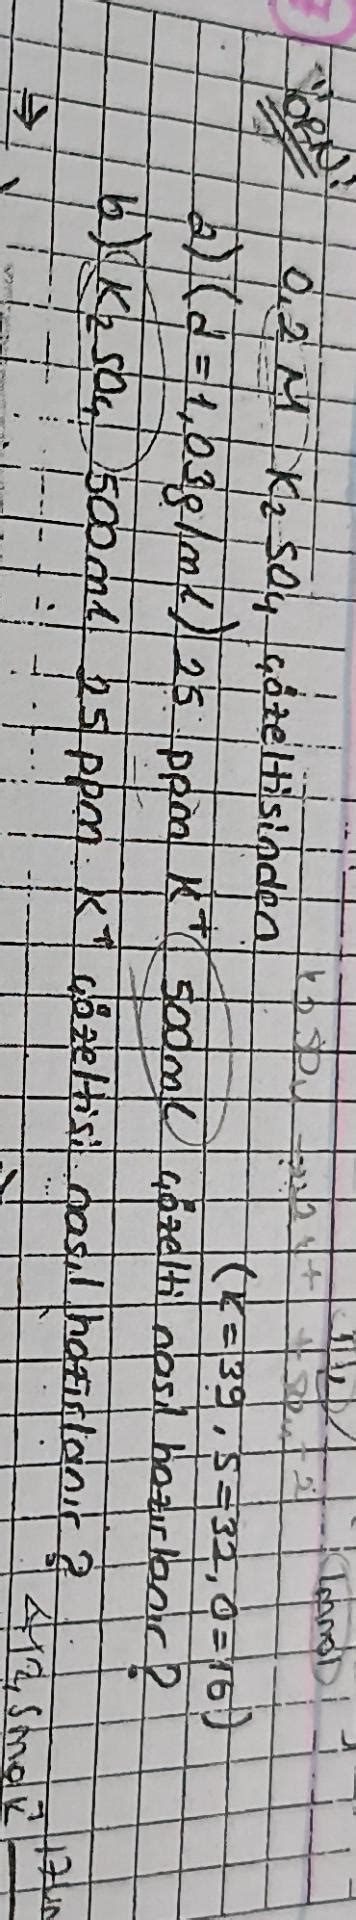 "ÖRN:
0,2 M K2SO4 çözeltisinden
(K=39, S=32, O=16)
a) (d=1,03g/mL) 25 ppm K+ 500mL çözelti nasıl hazırlanır?
b) K2SO4 500mL 25 ppm K+ çözeltisi nasıl hazırlanır?
⇒